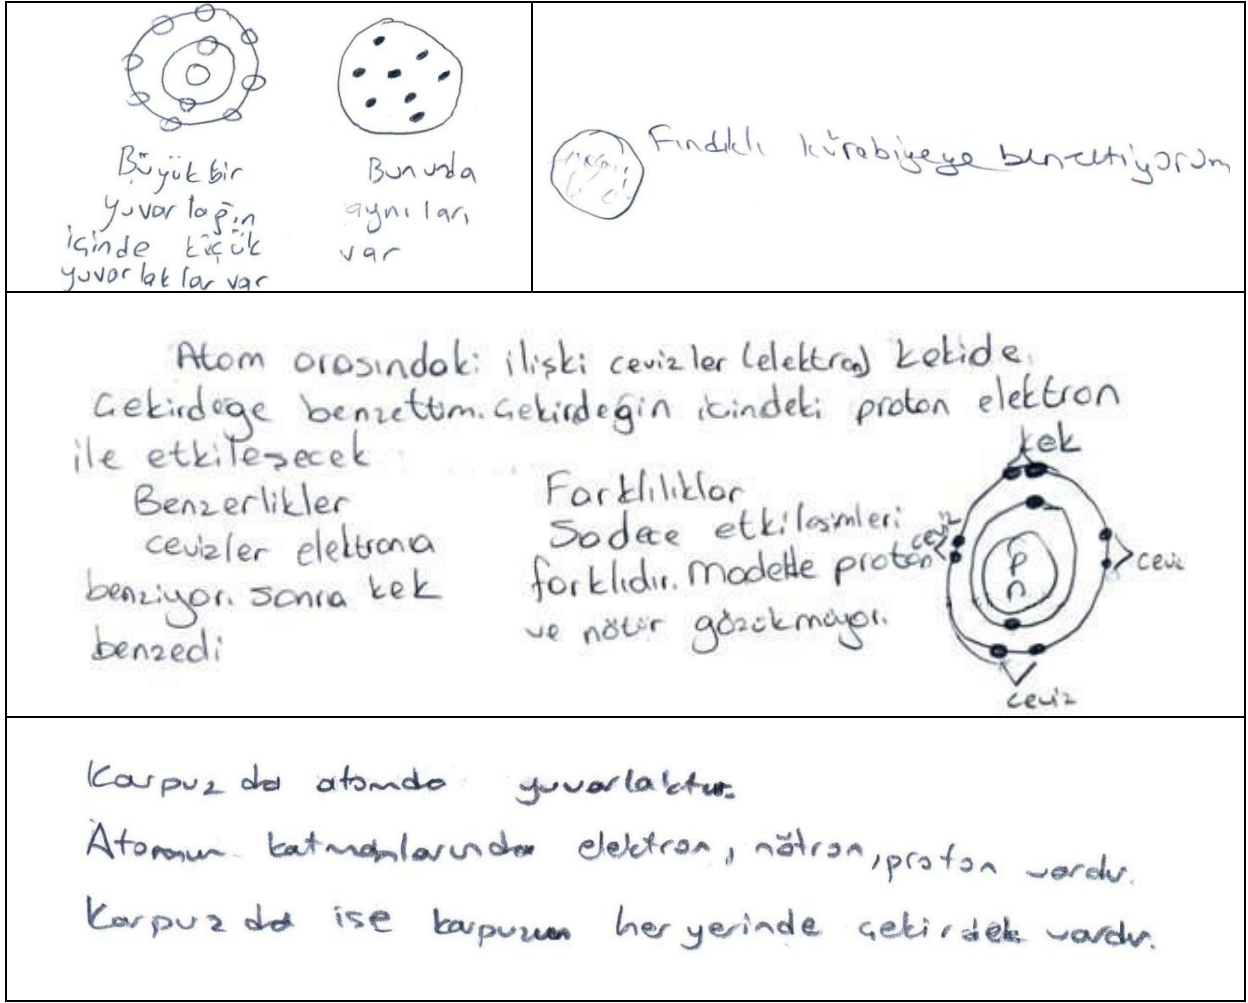 Büyük bir
yuvarlağın
içinde küçük
yuvarlaklar var
Bununda
aynıları
var
Fındıklı kürabiyeye benzetiyorum
Atom arasındaki ilişki cevizler (elektron) kekide
Çekirdeğe benzettim. Çekirdeğin içindeki proton elektron
ile etkileşecek
Benzerlikler
cevizler elektrona
benziyor. sonra kek
benzedi
Farklılıklar
Sadece etkileşimleri
farklıdır. Modelde proton
ve nötür gözükmüyor.
kek
ceviz
p
n
ceviz
ceviz
Karpuz da atomda yuvarlaktır.
Atomun katmanlarında elektron, nötron, proton vardır.
Karpuz da ise karpuzun her yerinde çekirdek vardır.